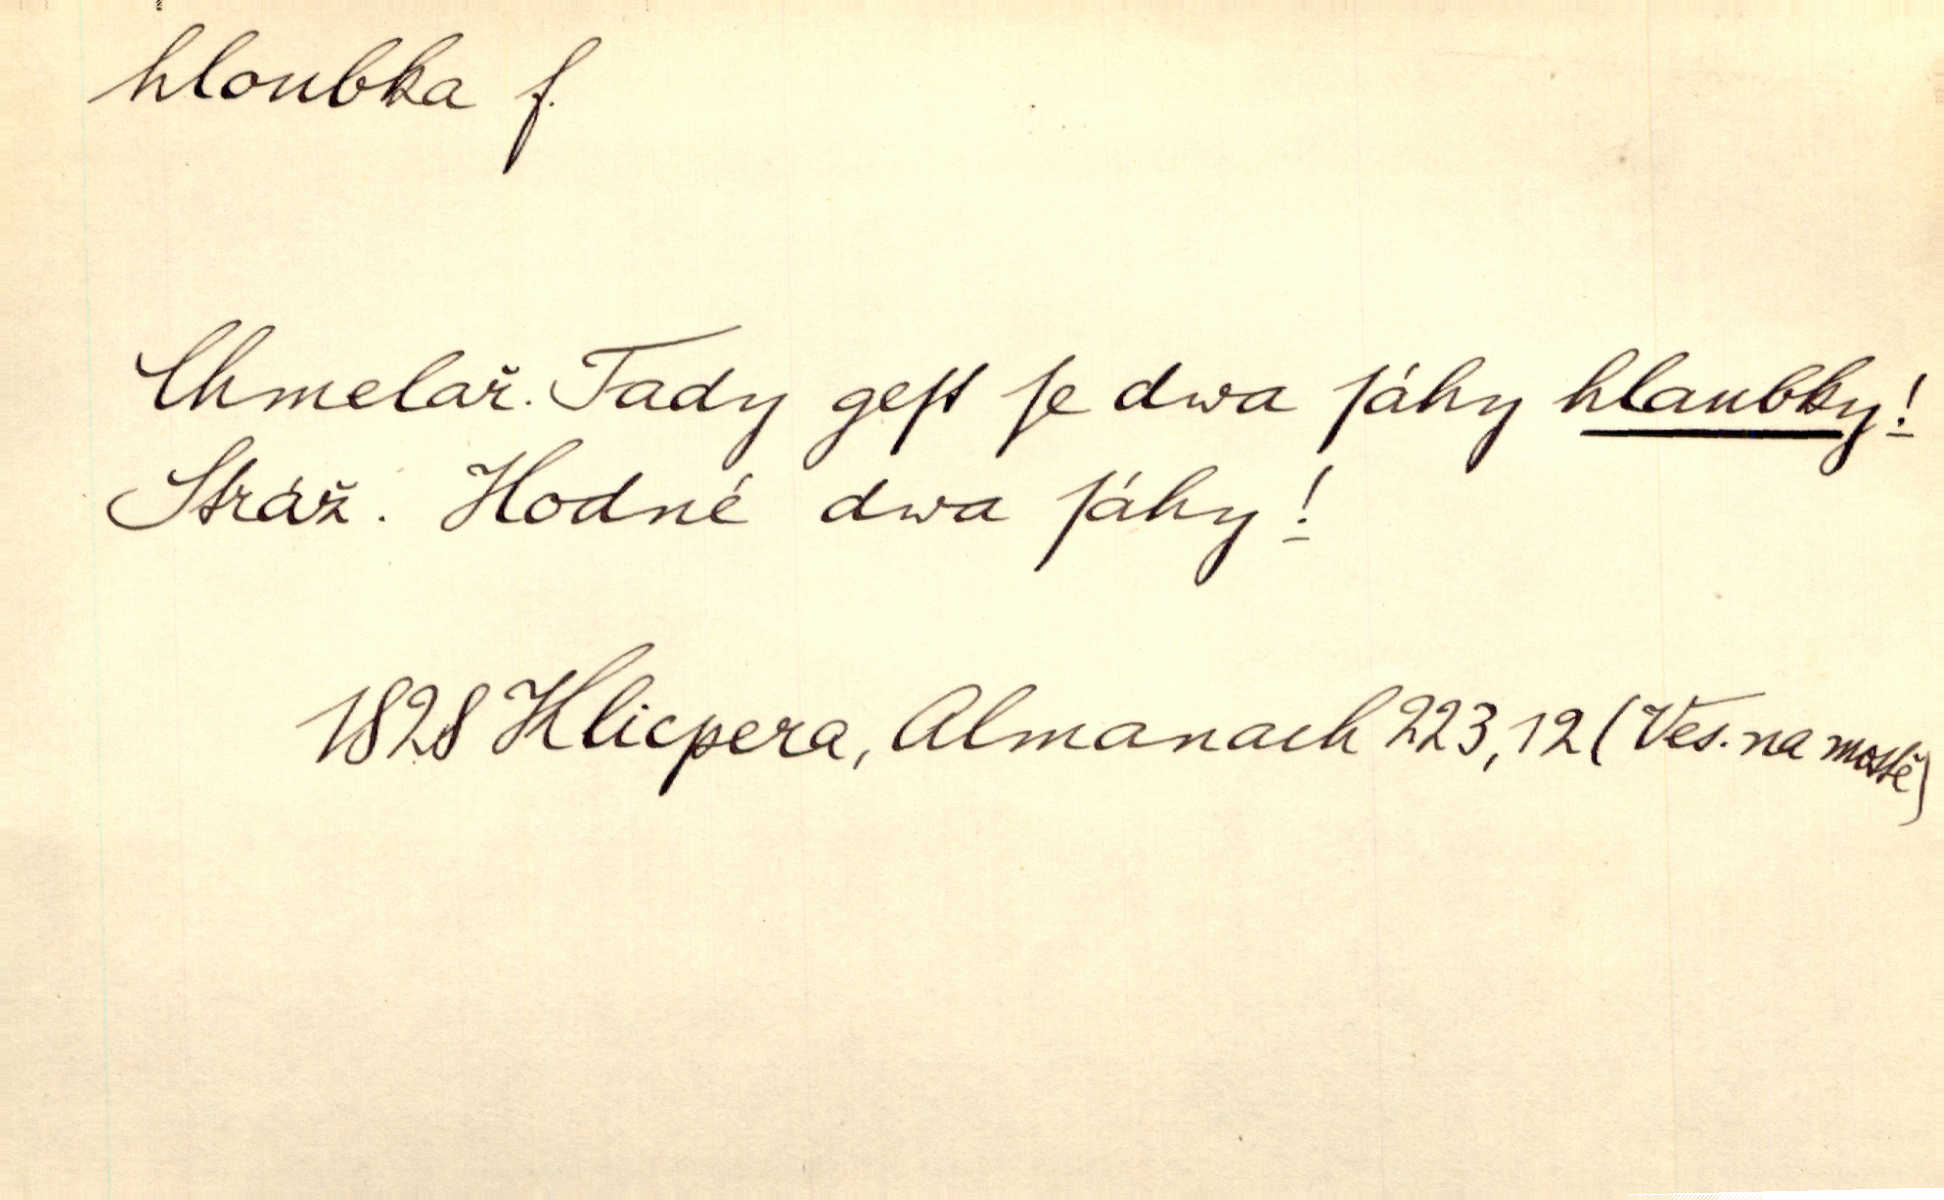 hloubka f.
Chmelař. Tady geſt ſe dwa ſáhy hlaubky!
Stráž. Hodné dwa ſáhy!
1828 Klicpera, Almanach 223,12 (Ves. na mostě)